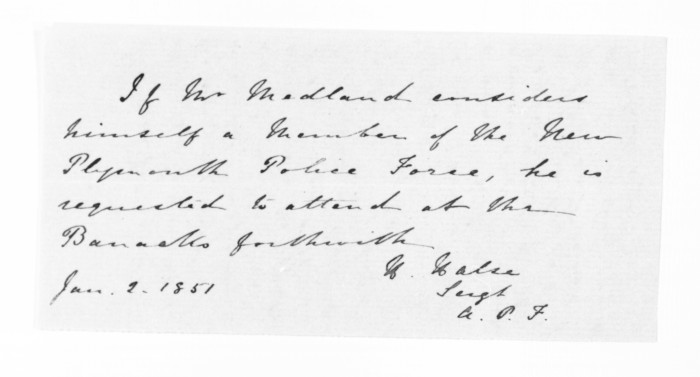 If Mr Medland considers
himself a Member of the New
Plymouth Police Force, he is
requested to attend at the
Barracks forthwith
H. Halse
Sergt
A. P. F.
Jan. 2. 1851